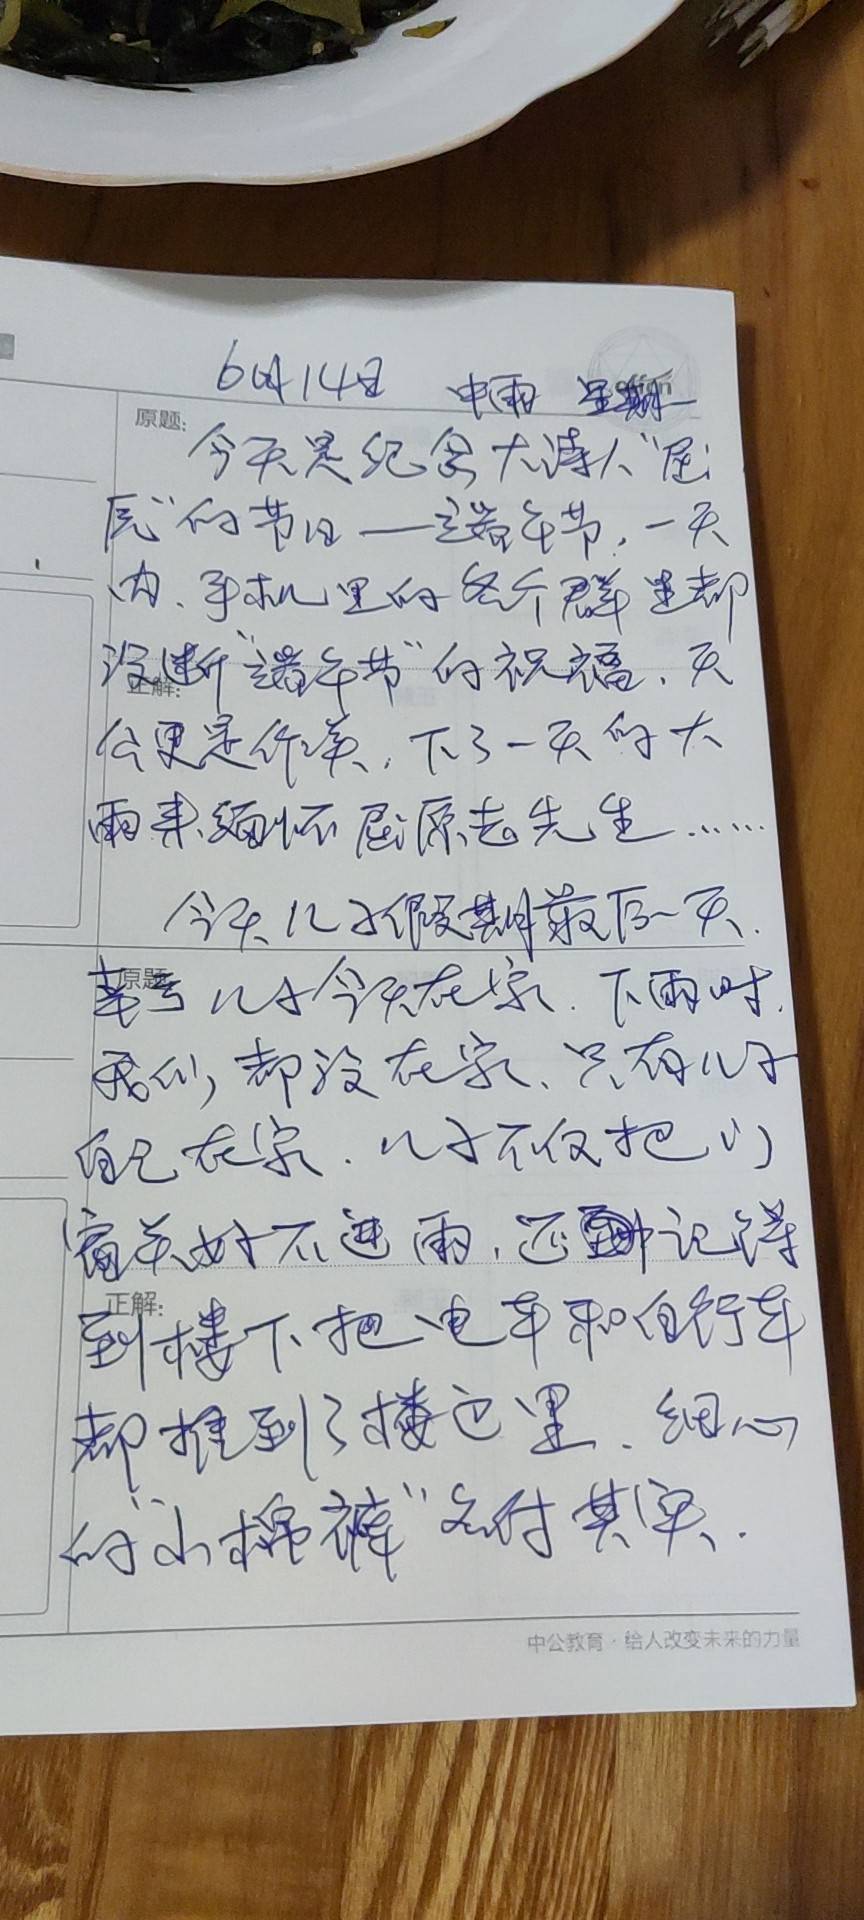 6月14日 中雨 星期一
offcn
原题:
今天是纪念大诗人“屈
原”的节日——端午节,一天
内、手机里的各个群里都
没断“端午节”的祝福、天
正解:
公更是作美,下了一天的大
雨来缅怀屈原老先生……
今天儿子假期最后一天.
原题
幸亏儿子今天在家.下雨时.
我们都没在家、只有儿子
自己在家.儿子不仅把门
窗关好不进雨,还记得
正解:
到楼下把电车和自行车
都推到了楼道里、细心
的“小棉裤”名付其实.
中公教育·给人改变未来的力量